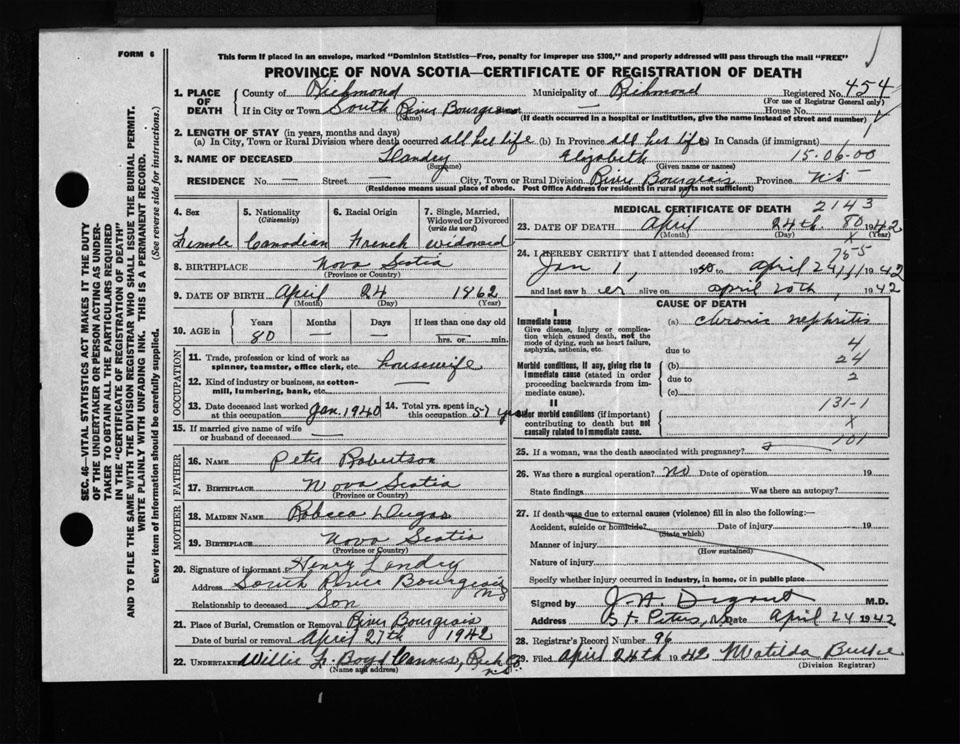 FORM 6
This form if placed in an envelope, marked "Dominion Statistics—Free, penalty for improper use $300," and properly addressed will pass through the mail "FREE"
PROVINCE OF NOVA SCOTIA—CERTIFICATE OF REGISTRATION OF DEATH
SEC. 46—VITAL STATISTICS ACT MAKES IT THE DUTY
OF THE UNDERTAKER OR PERSON ACTING AS UNDER-
TAKER TO OBTAIN ALL THE PARTICULARS REQUIRED
IN THE "CERTIFICATE OF REGISTRATION OF DEATH"
AND TO FILE THE SAME WITH THE DIVISION REGISTRAR WHO SHALL ISSUE THE BURIAL PERMIT.
WRITE PLAINLY WITH UNFADING INK. THIS IS A PERMANENT RECORD.
Every item of information should be carefully supplied. (See reverse side for instructions.)
1. PLACE OF DEATH County of Richmond Municipality of Richmond Registered No. 454
(For use of Registrar General only)
If in City or Town South River Bourgeois (Name) — House No.
(If death occurred in a hospital or institution, give the name instead of street and number)
2. LENGTH OF STAY (in years, months and days)
(a) In City, Town or Rural Division where death occurred all her life (b) In Province all her life (c) In Canada (if immigrant)
3. NAME OF DECEASED Landry (Surname) Elizabeth (Given name or names) 15-06-00
RESIDENCE No. — Street — City, Town or Rural Division River Bourgeois Province N.S.
(Residence means usual place of abode. Post Office Address for residents in rural parts not sufficient)
4. Sex 5. Nationality (Citizenship) 6. Racial Origin 7. Single, Married, Widowed or Divorced (write the word)
Female Canadian French widowed
8. BIRTHPLACE Nova Scotia
(Province or Country)
9. DATE OF BIRTH April 24 1862
(Month) (Day) (Year)
10. AGE in Years Months Days If less than one day old
80 — — hrs. or min.
OCCUPATION
11. Trade, profession or kind of work as spinner, teamster, office clerk, etc. housewife
12. Kind of industry or business, as cotton-mill, lumbering, bank, etc. —
13. Date deceased last worked at this occupation Jan. 1940 14. Total yrs. spent in this occupation 57 yrs
15. If married give name of wife or husband of deceased —
FATHER
16. NAME Peter Robertson
17. BIRTHPLACE Nova Scotia
(Province or Country)
MOTHER
18. MAIDEN NAME Rebecca Dugas
19. BIRTHPLACE Nova Scotia
(Province or Country)
20. Signature of informant Henry Landry
Address South River Bourgeois N.S.
Relationship to deceased Son
21. Place of Burial, Cremation or Removal River Bourgeois
Date of burial or removal April 27th 1942
22. UNDERTAKER Willis Boyd Cannes, Rich Co. N.S.
(Name and address)
MEDICAL CERTIFICATE OF DEATH 2143
23. DATE OF DEATH April 24th 80 1942
(Month) (Day) X (Year)
24. I HEREBY CERTIFY that I attended deceased from: 75-5
Jan 1, 1940 to April 24 1942
and last saw her alive on April 20th, 1942
CAUSE OF DEATH
I
Immediate cause (a) chronic nephritis
Give disease, injury or complication which caused death, not the mode of dying, such as heart failure, asphyxia, asthenia, etc.
due to 4
Morbid conditions, if any, giving rise to Immediate cause (stated in order proceeding backwards from immediate cause). (b) 24
due to 2
(c)
II 131-1
Other morbid conditions (if important) contributing to death but not causally related to Immediate cause. X
101
25. If a woman, was the death associated with pregnancy?
26. Was there a surgical operation? No Date of operation 19
State findings Was there an autopsy?
27. If death was due to external causes (violence) fill in also the following:—
Accident, suicide or homicide? Date of injury 19
(State which)
Manner of injury
(How sustained)
Nature of injury
Specify whether injury occurred in industry, in home, or in public place
Signed by J. A. Digout M.D.
Address St. Peters, N.S. Date April 24 1942
28. Registrar's Record Number 96
29. Filed April 24th 1942 Matilda Burke
(Division Registrar)